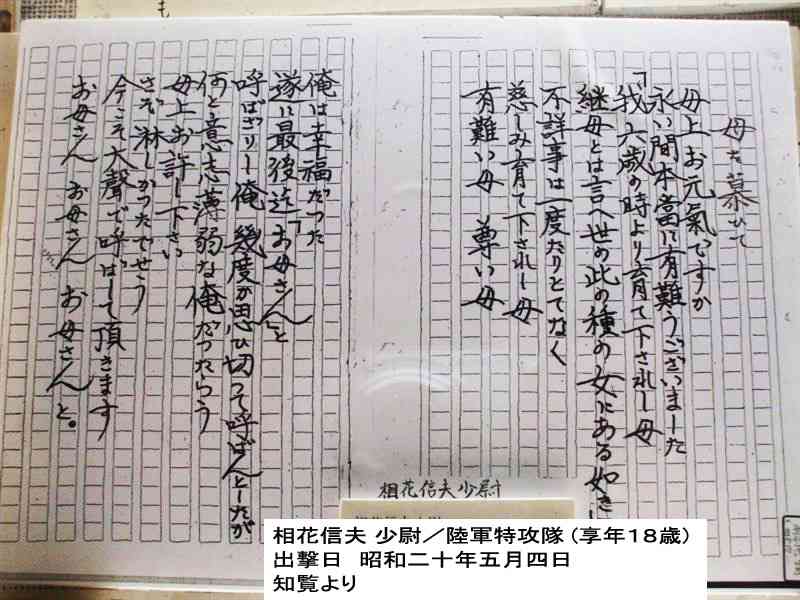 母を慕ひて
母上お元氣ですか
永い間本當に有難うございました
「我六歳の時より育て下されし母
継母とは言へ世の此の種の女にある如き
不詳事は一度たりとてなく
慈しみ育て下されし母
有難い母 尊い母
俺は幸福だった
遂に最後迄「お母さん」と
呼ばざりし俺 幾度か思ひ切って呼ばんとしたが
何と意志薄弱な俺だったらう
母上お許し下さい
さぞ淋しかったでせう
今こそ大聲で呼ばして頂きます
お母さん お母さん お母さんと。
相花信夫少尉
相花信夫 少尉/陸軍特攻隊(享年18歳)
出撃日 昭和二十年五月四日
知覧より